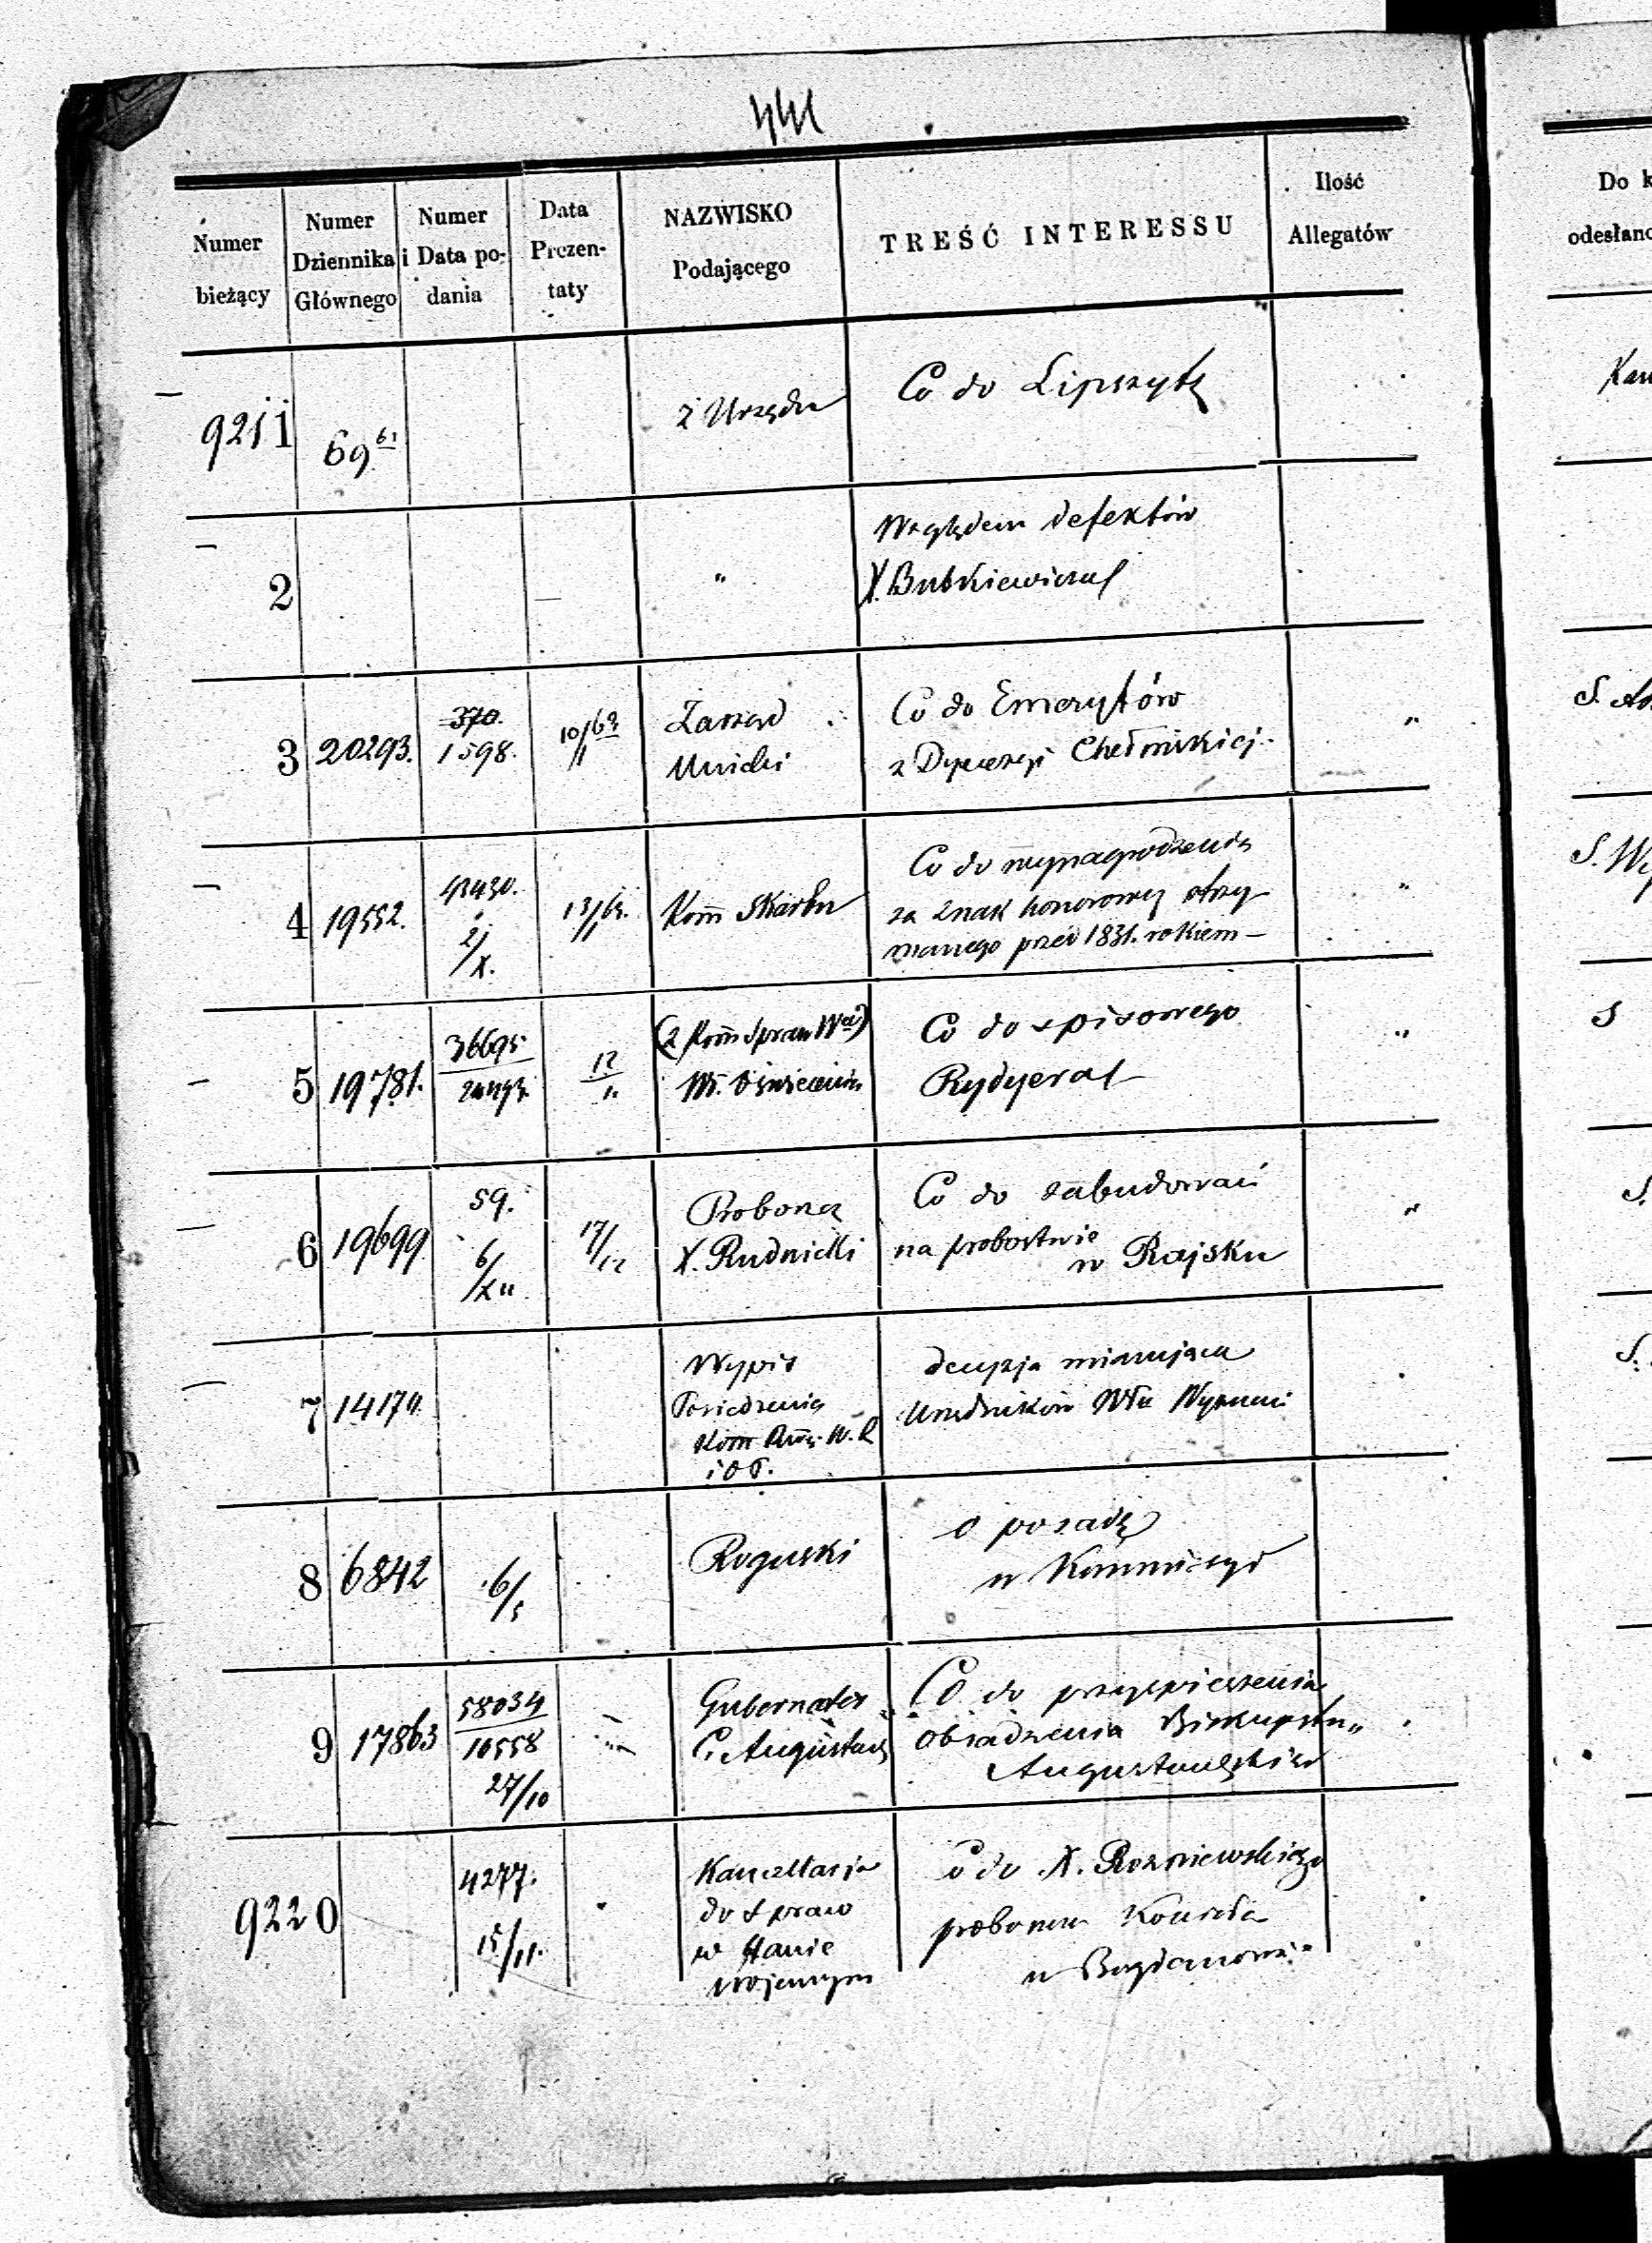 441
Numer bieżący
Numer Dziennika Głównego
Numer i Data podania
Data Prezentaty
NAZWISKO Podającego
TREŚĆ INTERESSU
Ilość Allegatów
Do k
odesłano
9211 69 61 z Urzędu Co do Lipszytz
2 " Względem defektów
X. Butkiewicza
3 20293. 370. 1598. 10/1 63 Zarząd Unicki
Co do Emerytów
z Dyecezyi Chełmskiej
"
4 19552. 43430. 2/X. 13/1 63. Kom Skarbu
Co do wynagrodzenia
za znak honorowy otrzy
manego przed 1831. rokiem
"
5 19781. 36695 12/1. (z Kom Spraw W)
W. Oświecenia
Co do spisowego
Rydygera
"
6 19699 59. 6/XII 17/12 Proboszcz
X. Rudnicki
Co do zabudowań
na probostwie
w Rajsku
"
7 14174 Wypis
Posiedzenia
Kom Rząd. W. R
i O P.
decyzja mianująca
Urzędników Wła Wyznań
8 6842 6/5 Roguski
o posadę
w Kommissyi
9 17863 58034 10558 27/10 Gubernator
C. Augustow
Co do przyspieszenia
Obsadzenia Biskupstw
Augustowskiego
9220 4277. 15/11. Kancellarja
do spraw
w Stanie
wojennym
Co do X. Rozniewskiego
proboszcza Kościoła
w Bogdanowie